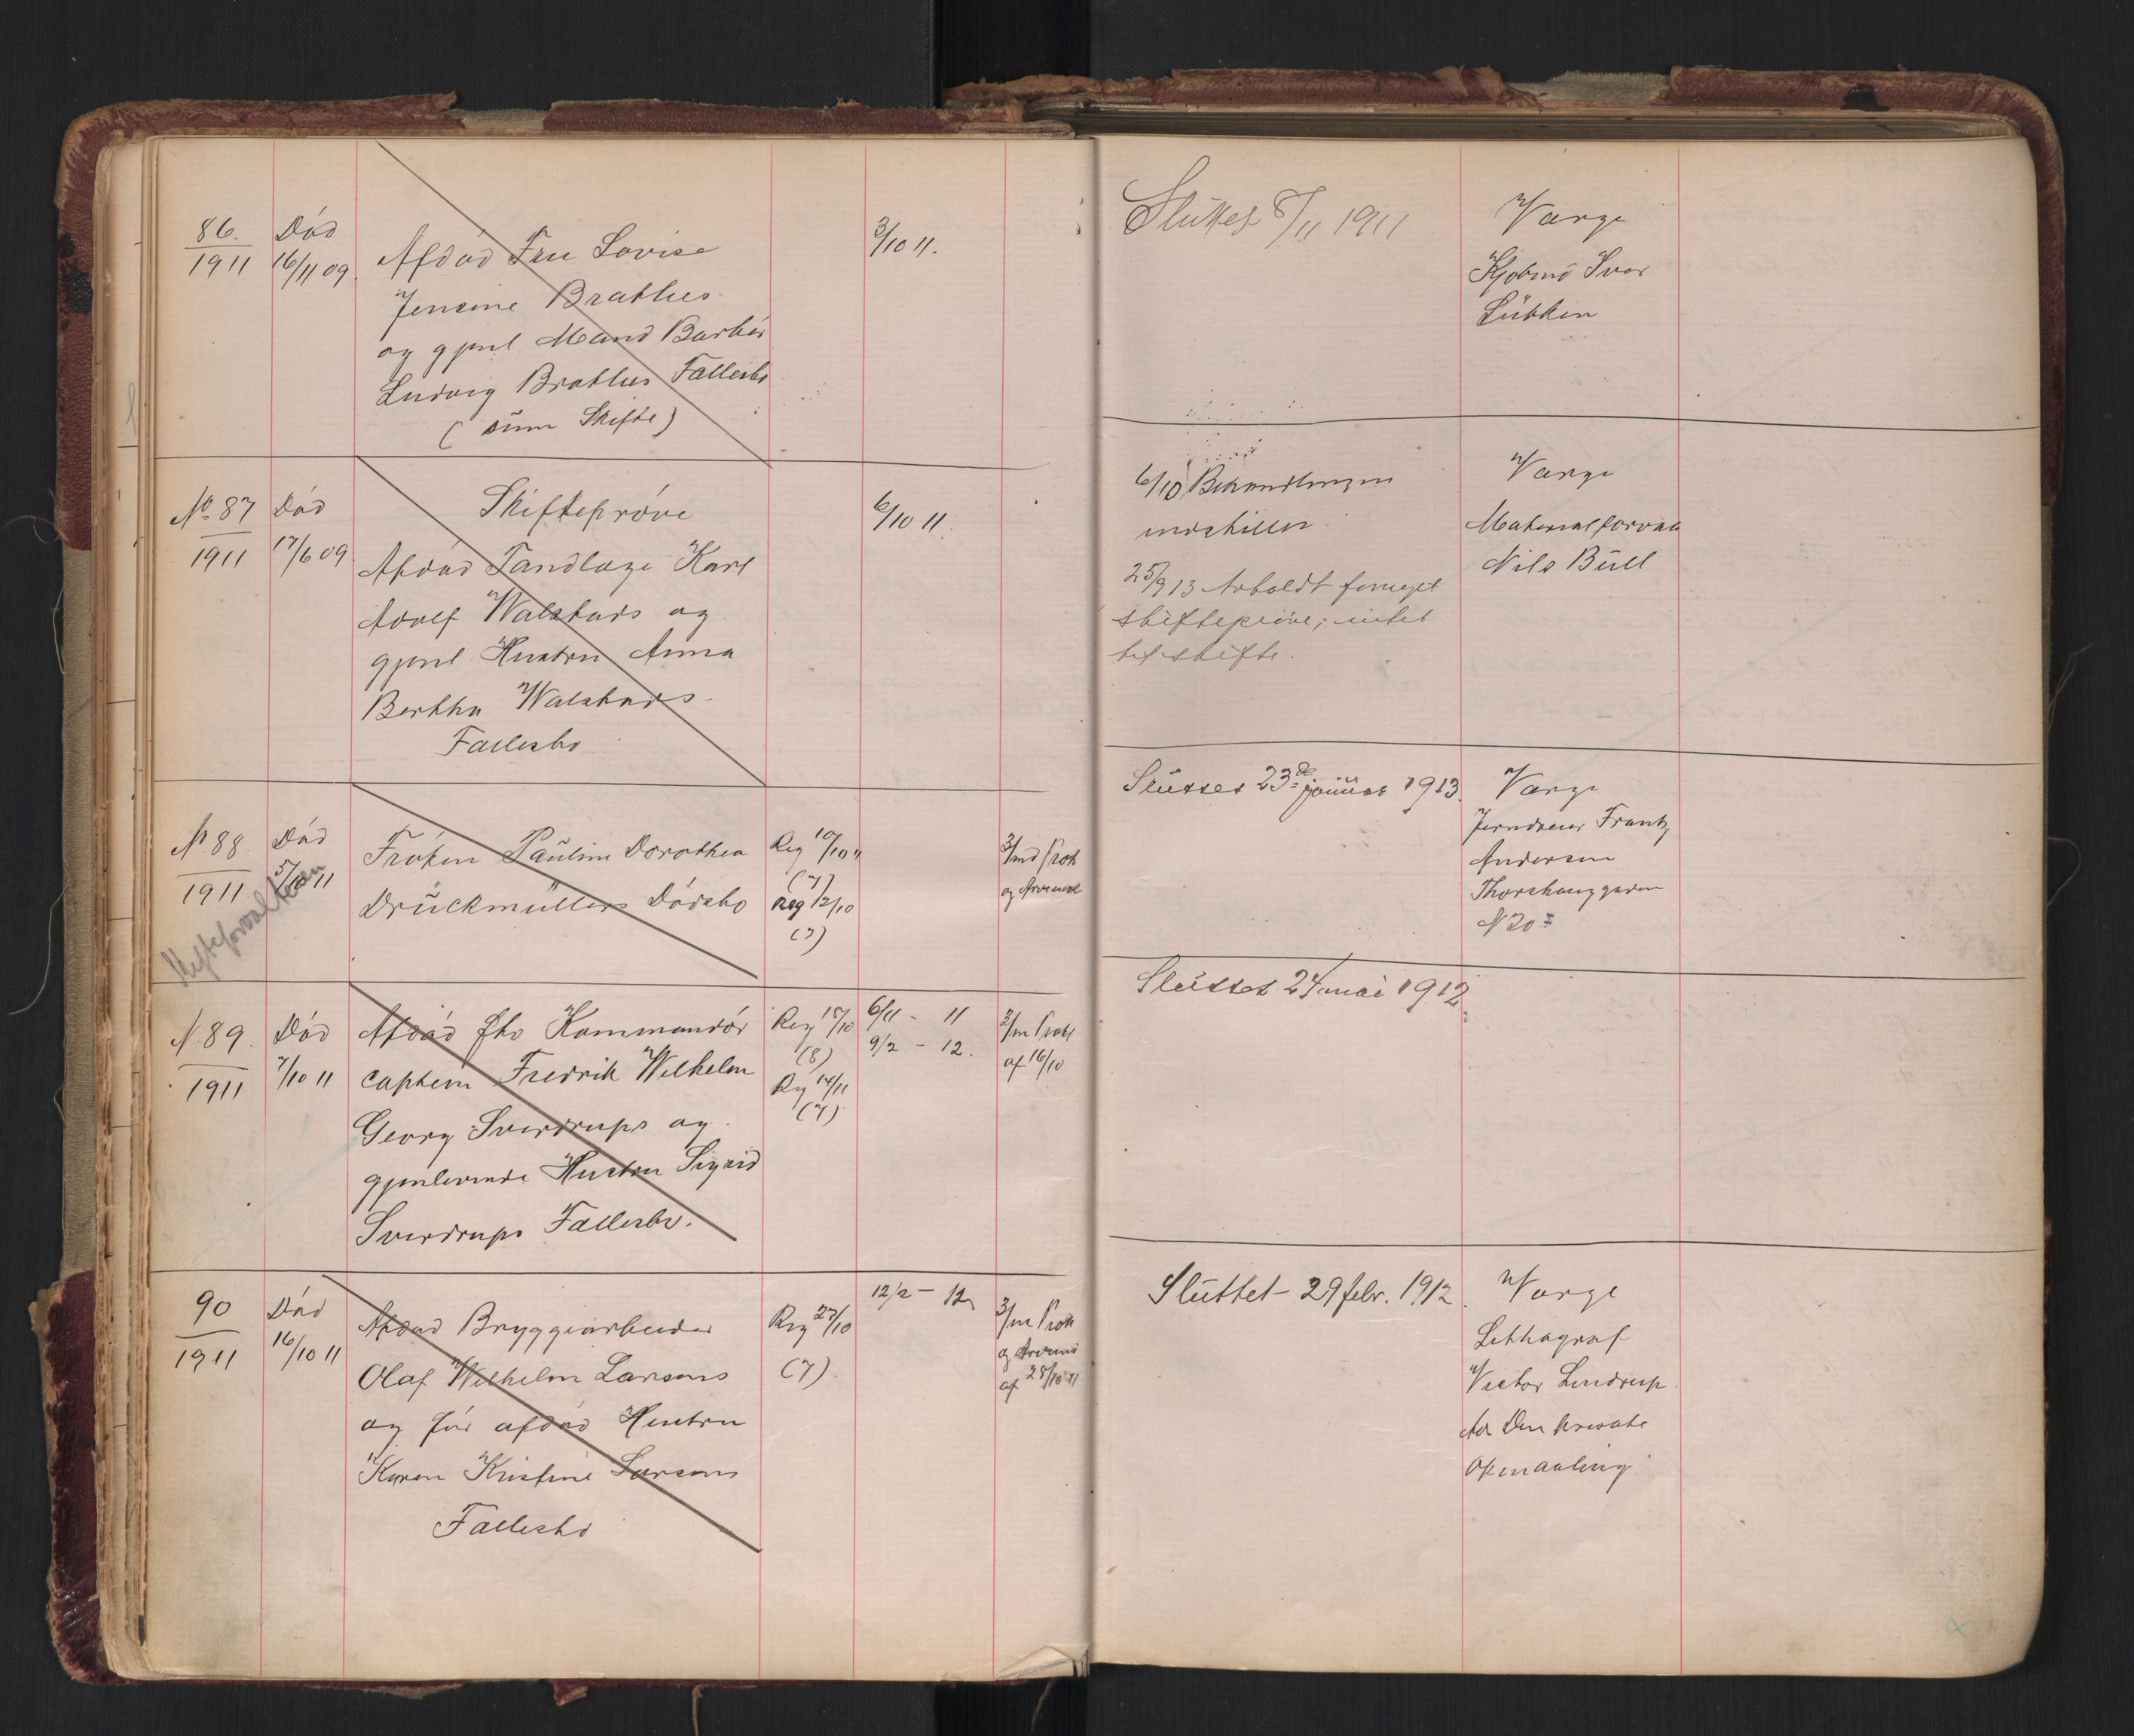 86.
1911
Død
16/11 09.
Afdød Fru Lovise
Jensine Brathus
og gjenl. Mand Barbér
Ludvig Brathus Fællesbo
( sum Skifte )
3/10 11.
Sluttet 8/11 1911
Værge
Kjøbmd Ivar
Lübken
No 87
1911
Død
17/6 09
Skifteprøve
Afdød Tandlæge Karl
Adolf Walstads og
gjenl Hustru Anna
Bertha Walstads
Fællesbo
6/10 11.
6/10 Behandlingen
indstilles
25/9 13 Avholdt fornyet
skifteprøve; intet
til skifte.
Værge
Materialforvalt
Nils Büll
N. 88.
1911
Død
5/10 11
Skifteforvalteren
Frøken Pauline Dorothea
Drückmüllers Dødsbo
Reg 10/10 11
(7)
Reg 12/10
(7)
3/md Prok
Sluttet 23de januar 1913.
Værge
Frantz
Andersen
N 20 II
N. 89.
1911
Død
7/10 11
Afdød fhv Kommandør
captein Fredrik Wilhelm
Georg Sverdrups og
gjenlevende Hustru Sigrid
Sverdrups Fællesbo.
Reg 18/10
(8)
Reg 14/11
(7)
6/11 - 11
9/2 - 12.
3/m Prokl
af 16/10
Sluttet 24 mai 1912.
90
1911
Død
16/10 11
Afdød Bryggearbeider
Olaf Wilhelm Larsens
og før afdød Hustru
Karen Kristine Larsens
Fællesbo
Reg 27/10
(7)
12/2 - 12
3/m Prok
og
af 28/10 11
Sluttet 29 febr. 1912.
Værge
Lithograf
Victor Lindrup
Ad Den private
Opmaaling